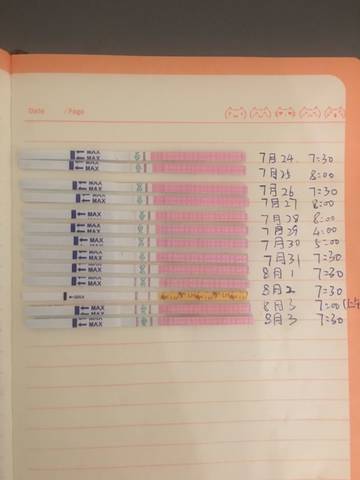 Date /Page
MAX
MAX 7月24 7:30
MAX 7月25 8:00
MAX 7月26 7:30
MAX 7月27 8:00
MAX 7月28 8:00
MAX 7月29 4:00
MAX 7月30 5:00
MAX 7月31 7:30
MAX 8月1 7:30
8月2 7:30
MAX 8月3 7:00
MAX 8月3 7:30